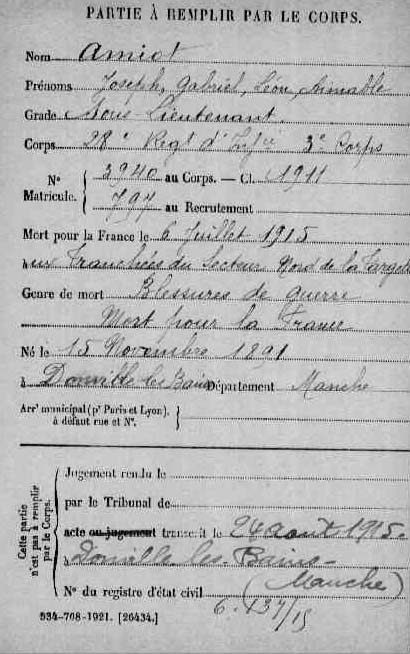 PARTIE À REMPLIR PAR LE CORPS.
Nom Amiot
Prénoms Joseph, Gabriel, Léon, Aimable
Grade Sous-Lieutenant.
Corps 28e Regt d'Infie 3e Corps
N° Matricule. { 3940 au Corps. — Cl. 1911
794 au Recrutement
Mort pour la France le 6 Juillet 1915
aux Tranchées du Secteur Nord de la Targette
Genre de mort Blessures de guerre
Mort pour la France
Né le 15 Novembre 1891
à Donville les Bains Département Manche
Arrt municipal (pr Paris et Lyon),
à défaut rue et N°.
Cette partie n'est pas à remplir par le Corps.
Jugement rendu le
par le Tribunal de
acte ou jugement transcrit le 24 août 1915.
à Donville les-Bains-
(Manche)
N° du registre d'état civil
6. 137/15
534-708-1921. [26434.]